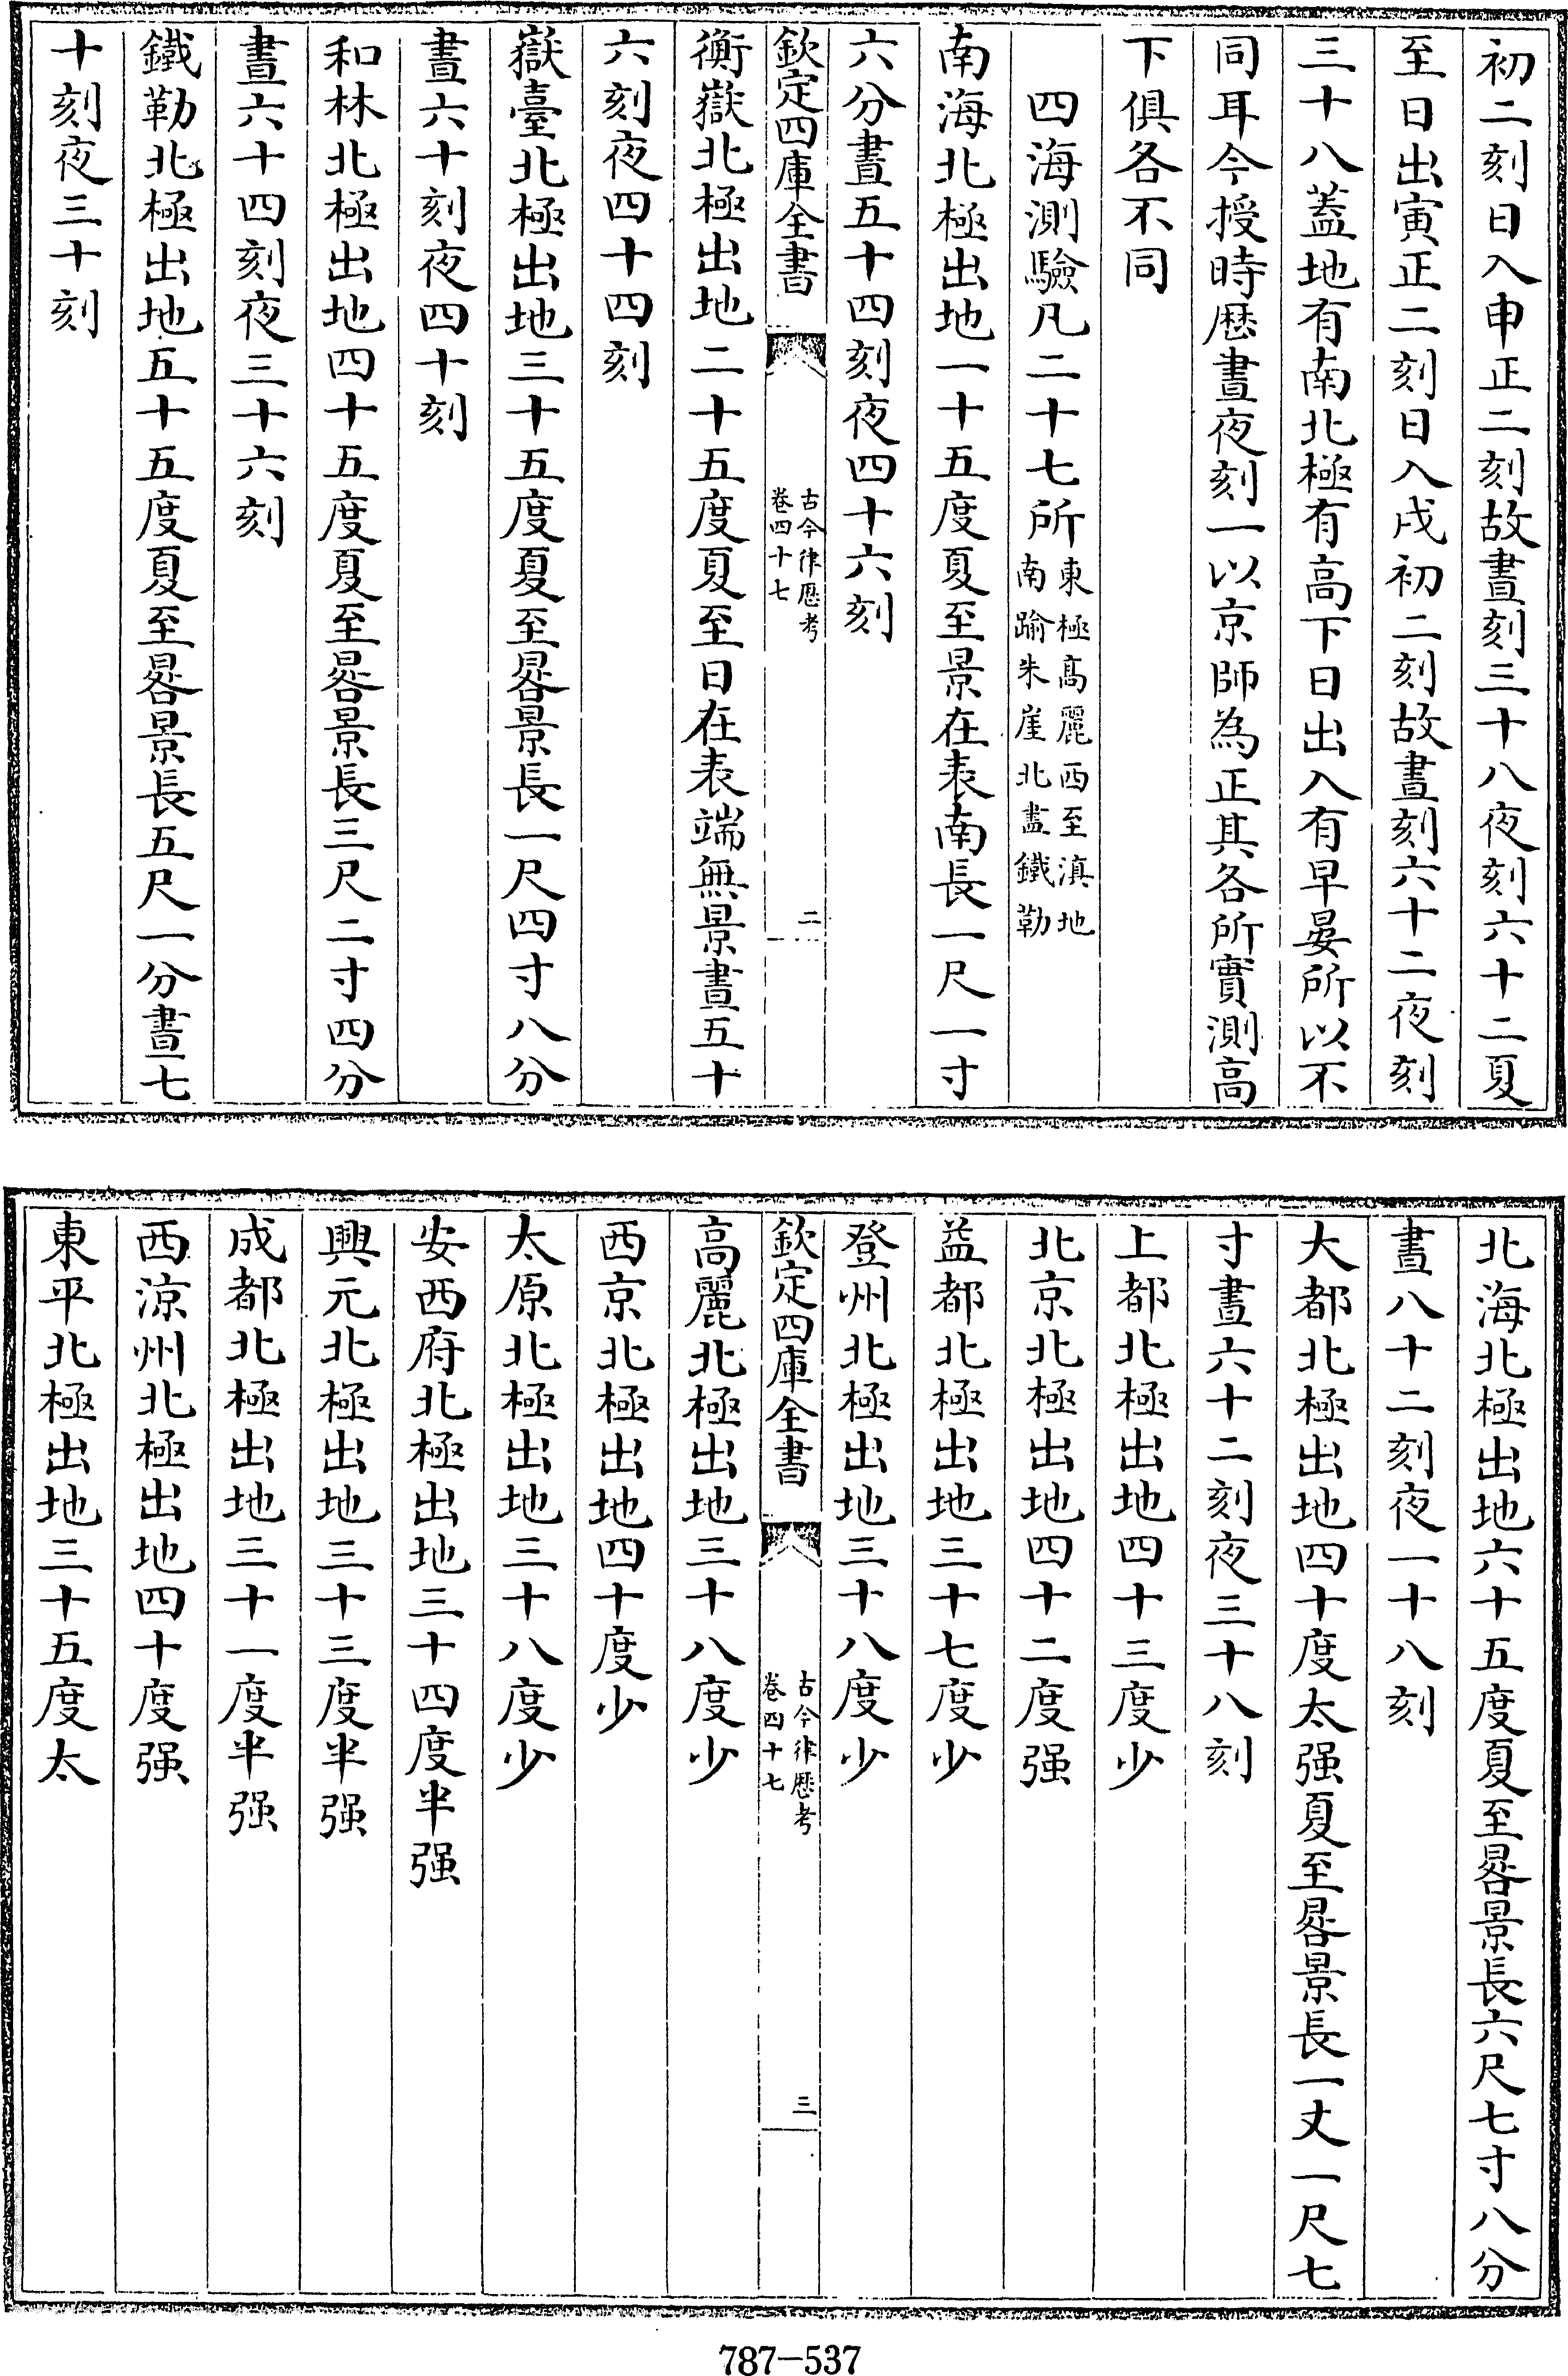 初二刻日入申正二刻故晝刻三十八夜刻六十二夏
至日出寅正二刻日入戌初二刻故晝刻六十二夜刻
三十八蓋地有南北極有高下日出入有早晏所以不
同耳今授時厯晝夜刻一以京師為正其各所實測高
下俱各不同
四海測驗凡二十七所東極高麗西至滇地南踰朱崖北盡鐵勒
南海北極出地一十五度夏至景在表南長一尺一寸
六分晝五十四刻夜四十六刻
欽定四庫全書
古今律厯考
卷四十七
二
衡嶽北極出地二十五度夏至日在表端無景晝五十
六刻夜四十四刻
嶽臺北極出地三十五度夏至晷景長一尺四寸八分
晝六十刻夜四十刻
和林北極出地四十五度夏至晷景長三尺二寸四分
晝六十四刻夜三十六刻
鐵勒北極出地五十五度夏至晷景長五尺一分晝七
十刻夜三十刻
北海北極出地六十五度夏至晷景長六尺七寸八分
晝八十二刻夜一十八刻
大都北極出地四十度太强夏至晷景長一丈一尺七
寸晝六十二刻夜三十八刻
上都北極出地四十三度少
北京北極出地四十二度强
益都北極出地三十七度少
登州北極出地三十八度少
欽定四庫全書
古今律厯考
卷四十七
三
高麗北極出地三十八度少
西京北極出地四十度少
太原北極出地三十八度少
安西府北極出地三十四度半强
興元北極出地三十三度半强
成都北極出地三十一度半强
西涼州北極出地四十度强
東平北極出地三十五度太
787-537